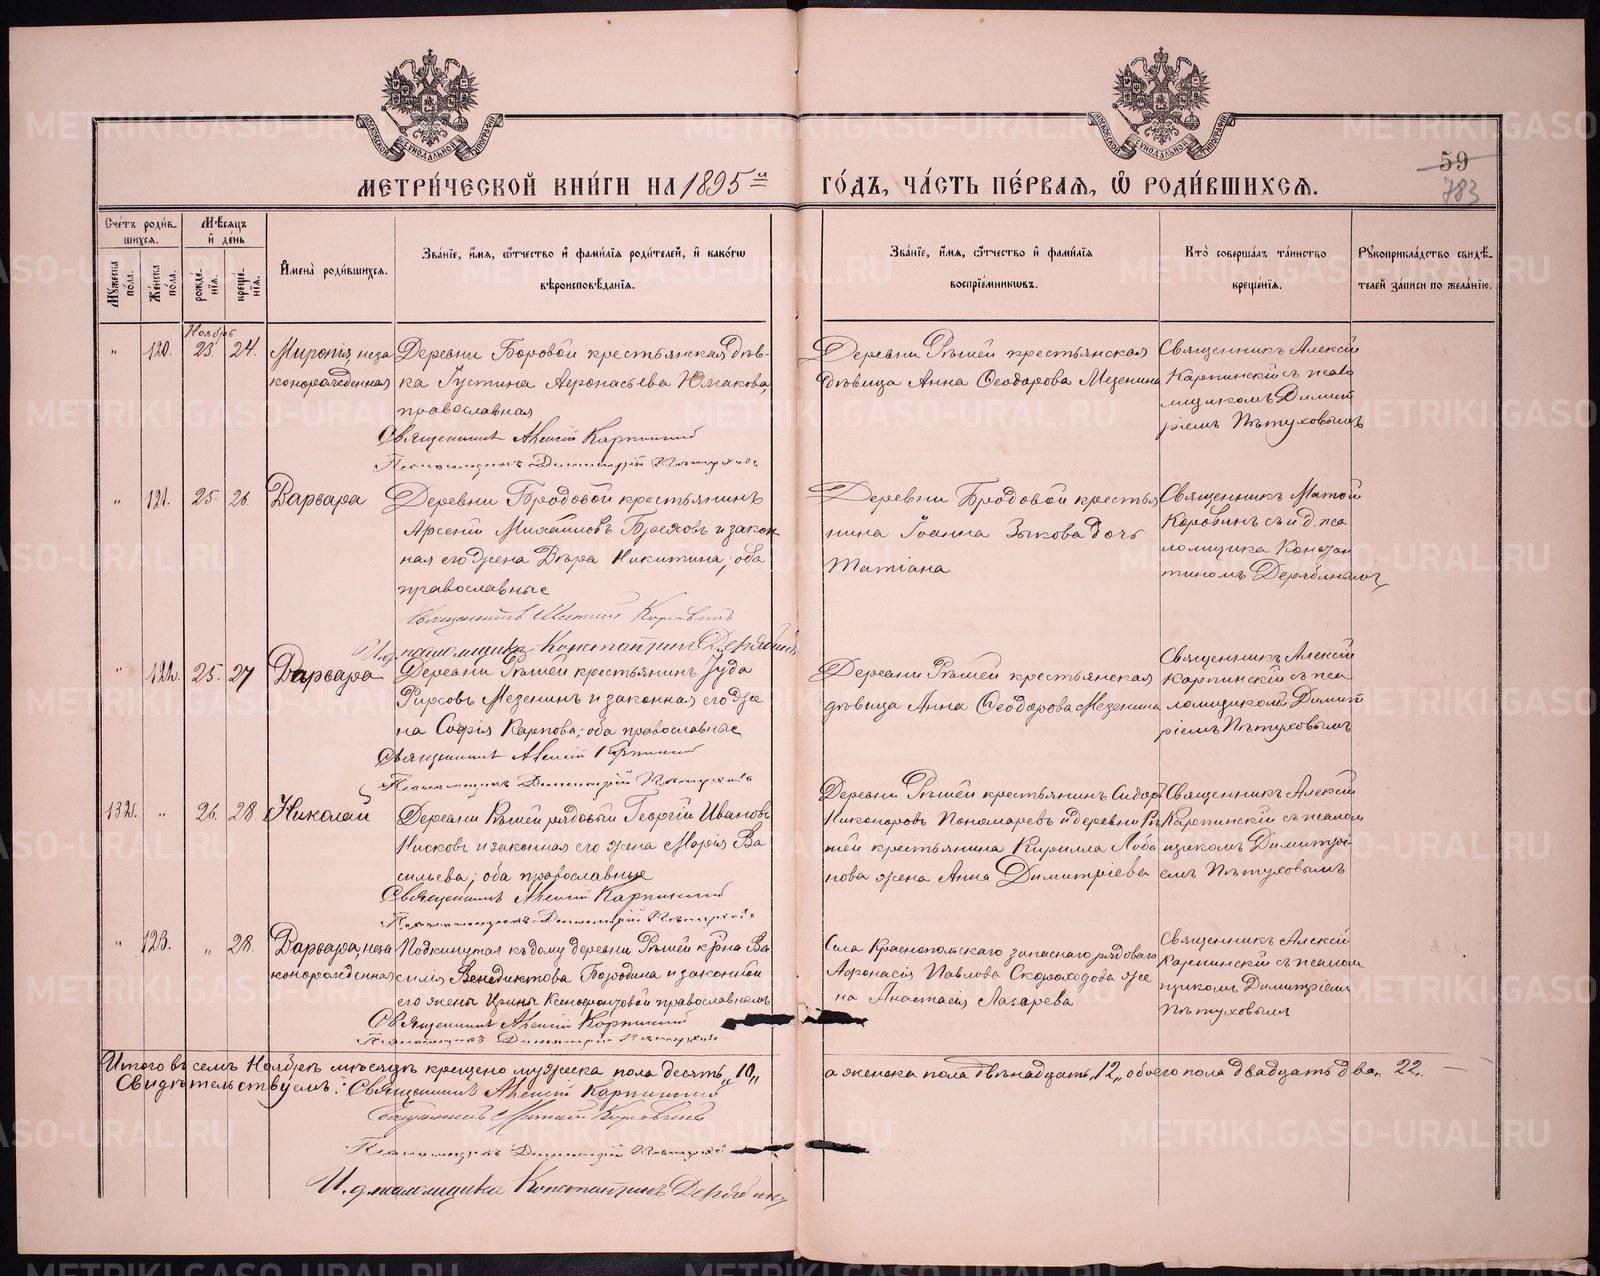 59
783
МЕТРИ́ЧЕСКОЙ КНИ́ГИ НА 1895й ГО́ДЪ, ЧА́СТЬ ПЕ́РВАѦ, Ѡ҆ РОДИ́ВШИХСѦ.
Сче́тъ роди́вшихся.
Мѣ́сяцъ и҆ де́нь
Мꙋ́жеска по́ла.
Же́нска по́ла.
рожде́нїѧ.
креще́нїѧ.
И҆мена̀ роди́вшихсѧ.
Зва́нїе, и҆́мѧ, ѻ҆́тчество и҆ фами́лїѧ роди́телей, и҆ како́гѡ вѣроисповѣ́данїѧ.
Зва́нїе, и҆́мѧ, ѻ҆́тчество и҆ фами́лїѧ воспрїе́мникѡвъ.
Кто̀ соверша́лъ та́инство креще́нїѧ.
Рꙋкоприкла́дство свидѣ́телей за́писи по жела́нїю.
Ноябрь
" 120. 23. 24. Миропія, неза
конорожденная
Деревни Боровой крестьянская дѣв-
ка Густина Аѳонасьева Южакова,
православная
Священникъ Алексій Карпинскій
Псаломщикъ Димитрій Пѣтуховъ
Деревни Рѣшей крестьянская
дѣвица Анна Ѳеодорова Мезенина
Священникъ Алексій
Карпинскій съ псало
мщикомъ Димит
ріемъ Пѣтуховымъ
" 121. 25. 26. Варвара
Деревни Бродовой крестьянинъ
Арсеній Михайловъ и закон
ная его жена Вѣра Никитина; оба
православные
Священникъ Матѳій Коровинъ
И.д. псаломщика Константинъ Дерябинъ
Деревни Бродовой кресть
янина Іоанна Зыкова дочь
Татіана
Священникъ Матѳій
Коровинъ съ и.д. пса
ломщика Констан
тиномъ Дерябинымъ
" 122. 25. 27 Варвара
Деревни Рѣшей крестьянинъ Іуда
Фирсовъ Мезенинъ и законная его же
на Софія Карпова; оба православные
Священникъ Алексій Карпинскій
Псаломщикъ Димитрій Пѣтуховъ
Деревни Рѣшей крестьянская
дѣвица Анна Ѳеодорова Мезенина
Священникъ Алексій
Карпинскій съ пса
ломщикомъ Димит
ріемъ Пѣтуховымъ
132. " 26. 28. Николай
Деревни Рѣшей рядовый Георгій Ивановъ
Писковъ и законная его жена Марія Ва
сильева; оба православные
Священникъ Алексій Карпинскій
Псаломщикъ Димитрій Пѣтуховъ
Деревни Рѣшей крестьянинъ Сидоръ
Никоноровъ Пономаревъ и деревни Рѣ
шей крестьянина Кирилла Лоба
нова жена Анна Димитріева
Священникъ Алексій
Карпинскій съ псалом
щикомъ Димитрі
емъ Пѣтуховымъ
" 123. " 28. Варвара, неза
конорожденная
Подкинутая къ дому деревни Рѣшей кр-на Ва
силія Венедиктова Бородина и законной
его жены Ирины Ксенофонтовой православныхъ
Священникъ Алексій Карпинскій
Псаломщикъ Димитрій Пѣтуховъ
Села запаснаго рядоваго
Аѳонасія Павлова Скороходова же
на Анастасія Лазарева
Священникъ Алексій
Карпинскій съ псалом
щикомъ Димитріемъ
Пѣтуховымъ
Итого въ семъ Ноябрѣ мѣсяцѣ крещено мужеска пола десять "10" а женска пола двѣнадцать "12" обоего пола двадцать два "22".
Свидѣтельствуемъ: Священникъ Алексій Карпинскій
Священникъ Матѳій Коровинъ
Псаломщикъ Димитрій Пѣтуховъ
И.д. псаломщика Константинъ Дерябинъ